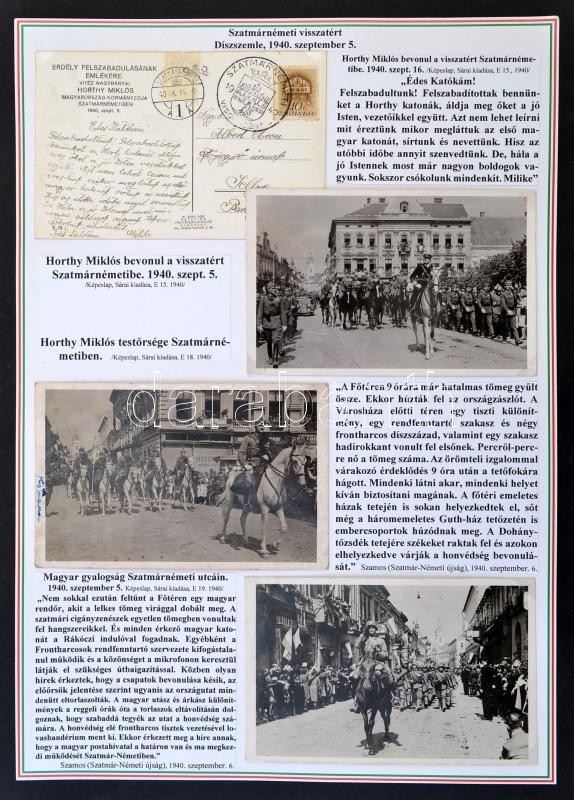 Szatmárnémeti visszatért
Díszszemle, 1940. szeptember 5.
ERDÉLY FELSZABADULÁSÁNAK
EMLÉKÉRE.
VITÉZ NAGYBÁNYAI
HORTHY MIKLÓS
MAGYARORSZÁG KORMÁNYZÓJA
SZATMÁRNÉMETIBEN
1940, szept. 5.
SZATMÁRNÉMETI
Horthy Miklós bevonul a visszatért Szatmárnéme-
tibe. 1940. szept. 16. /Képeslap, Sárai kiadása, E 15., 1940/
„Édes Katókám!
Felszabadultunk! Felszabadítottak bennün-
ket a Horthy katonák, áldja meg őket a jó
Isten, vezetőikkel együtt. Azt nem lehet leírni
mit éreztünk mikor megláttuk az első ma-
gyar katonát, sírtunk és nevettünk. Hisz az
utóbbi időbe annyit szenvedtünk. De, hála a
jó Istennek most már nagyon boldogok va-
gyunk. Sokszor csókolunk mindenkit. Milike”
Horthy Miklós bevonul a visszatért
Szatmárnémetibe. 1940. szept. 5.
/Képeslap, Sárai kiadása, E 15. 1940/
Horthy Miklós testőrsége Szatmárné-
metiben. /Képeslap, Sárai kiadása, E 18. 1940/
darabanth
„A Főtéren 9 órára már hatalmas tömeg gyült
össze. Ekkor húzták fel az országzászlót. A
Városháza előtti téren egy tiszti különít-
mény, egy rendfenntartó szakasz és négy
frontharcos díszszázad, valamint egy szakasz
hadirokkant vonult fel elsőnek. Percről-perc-
re nő a tömeg száma. Az örömteli izgalommal
várakozó érdeklődés 9 óra után a tetőfokára
hágott. Mindenki látni akar, mindenki helyet
kíván biztosítani magának. A főtéri emeletes
házak tetején is sokan helyezkedtek el, sőt
még a háromemeletes Guth-ház tetőzetén is
embercsoportok húzódnak meg. A Dohány-
tőzsdék tetejére székeket raktak fel és azokon
elhelyezkedve várják a honvédség bevonulá-
sát.” Szamos (Szatmár-Németi újság), 1940. szeptember. 6.
Magyar gyalogság Szatmárnémeti utcáin.
1940. szeptember 5. Képeslap, Sárai kiadása, E 19. 1940/
„Nem sokkal ezután feltűnt a Főtéren egy magyar
rendőr, akit a lelkes tömeg virággal dobált meg. A
szatmári cigányzenészek egyetlen tömegben vonultak
fel hangszereikkel. És minden érkező magyar kato-
nát a Rákóczi indulóval fogadnak. Egyébként a
Frontharcosok rendfenntartó szervezete kifogástala-
nul működik és a közönséget a mikrofonon keresztül
látják el szükséges útbaigazítással. Közben olyan
hírek érkeztek, hogy a csapatok bevonulása késik, az
előőrsök jelentése szerint ugyanis az országutat min-
denütt eltorlaszolták. A magyar utász és árkász különít-
mények a reggeli órák óta a torlaszok eltávolításán dol-
goznak, hogy szabaddá tegyék az utat a honvédség szá-
mára. A honvédség elé frontharcos tisztek vezetésével lo-
vasbandérium ment ki. Ekkor érkezett meg a híre annak,
hogy a magyar postahivatal a határon van és ma megkez-
di működését Szatmár-Németiben.”
Szamos (Szatmár-Németi újság), 1940. szeptember. 6.